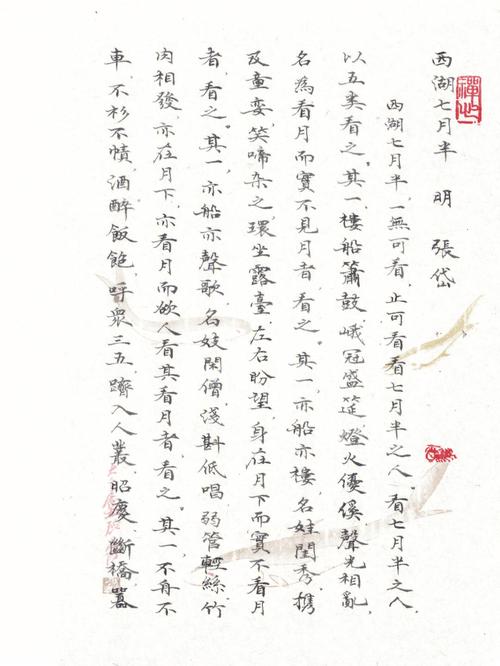 西湖七月半 明 張岱
西湖七月半，一無可看，止可看看七月半之人。看七月半之人，
以五类看之。其一，樓船簫鼓，峨冠盛筵，燈火優傒，聲光相亂，
名為看月而實不見月者，看之。其一，亦船亦樓，名娃閨秀，携
及童孌，笑啼杂之，環坐露臺，左右盼望，身在月下而實不看月
者，看之。其一，亦船亦聲歌，名妓閑僧，淺斟低唱，弱管輕絲，竹
肉相發，亦在月下，亦看月而欲人看其看月者，看之。其一，不舟不
車，不杉不幘，酒醉飯飽，呼衆三五，躋入人叢，昭慶、斷橋，囂